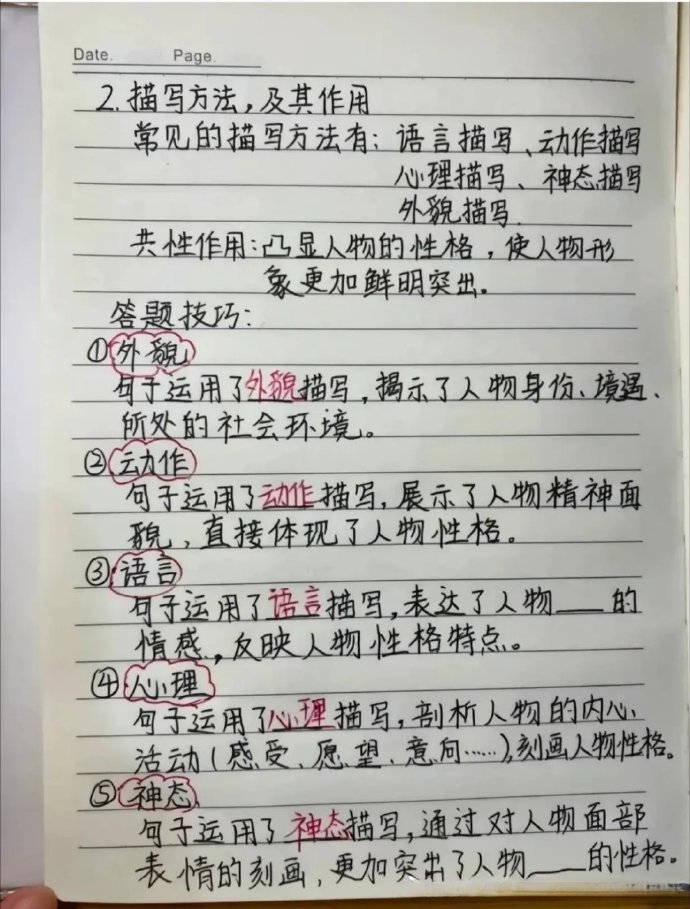 Date. Page.
2. 描写方法，及其作用
常见的描写方法有：语言描写、动作描写
心理描写、神态描写
外貌描写.
共性作用：凸显人物的性格，使人物形
象更加鲜明突出。
答题技巧：
①外貌
句子运用了外貌描写，揭示了人物身份、境遇、
所处的社会环境。
②动作
句子运用了动作描写，展示了人物精神面
貌，直接体现了人物性格。
③语言
句子运用了语言描写，表达了人物____的
情感，反映人物性格特点。
④心理
句子运用了心理描写，剖析人物的内心
活动（感受、愿望、意向……），刻画人物性格。
⑤神态
句子运用了神态描写，通过对人物面部
表情的刻画，更加突出了人物____的性格。